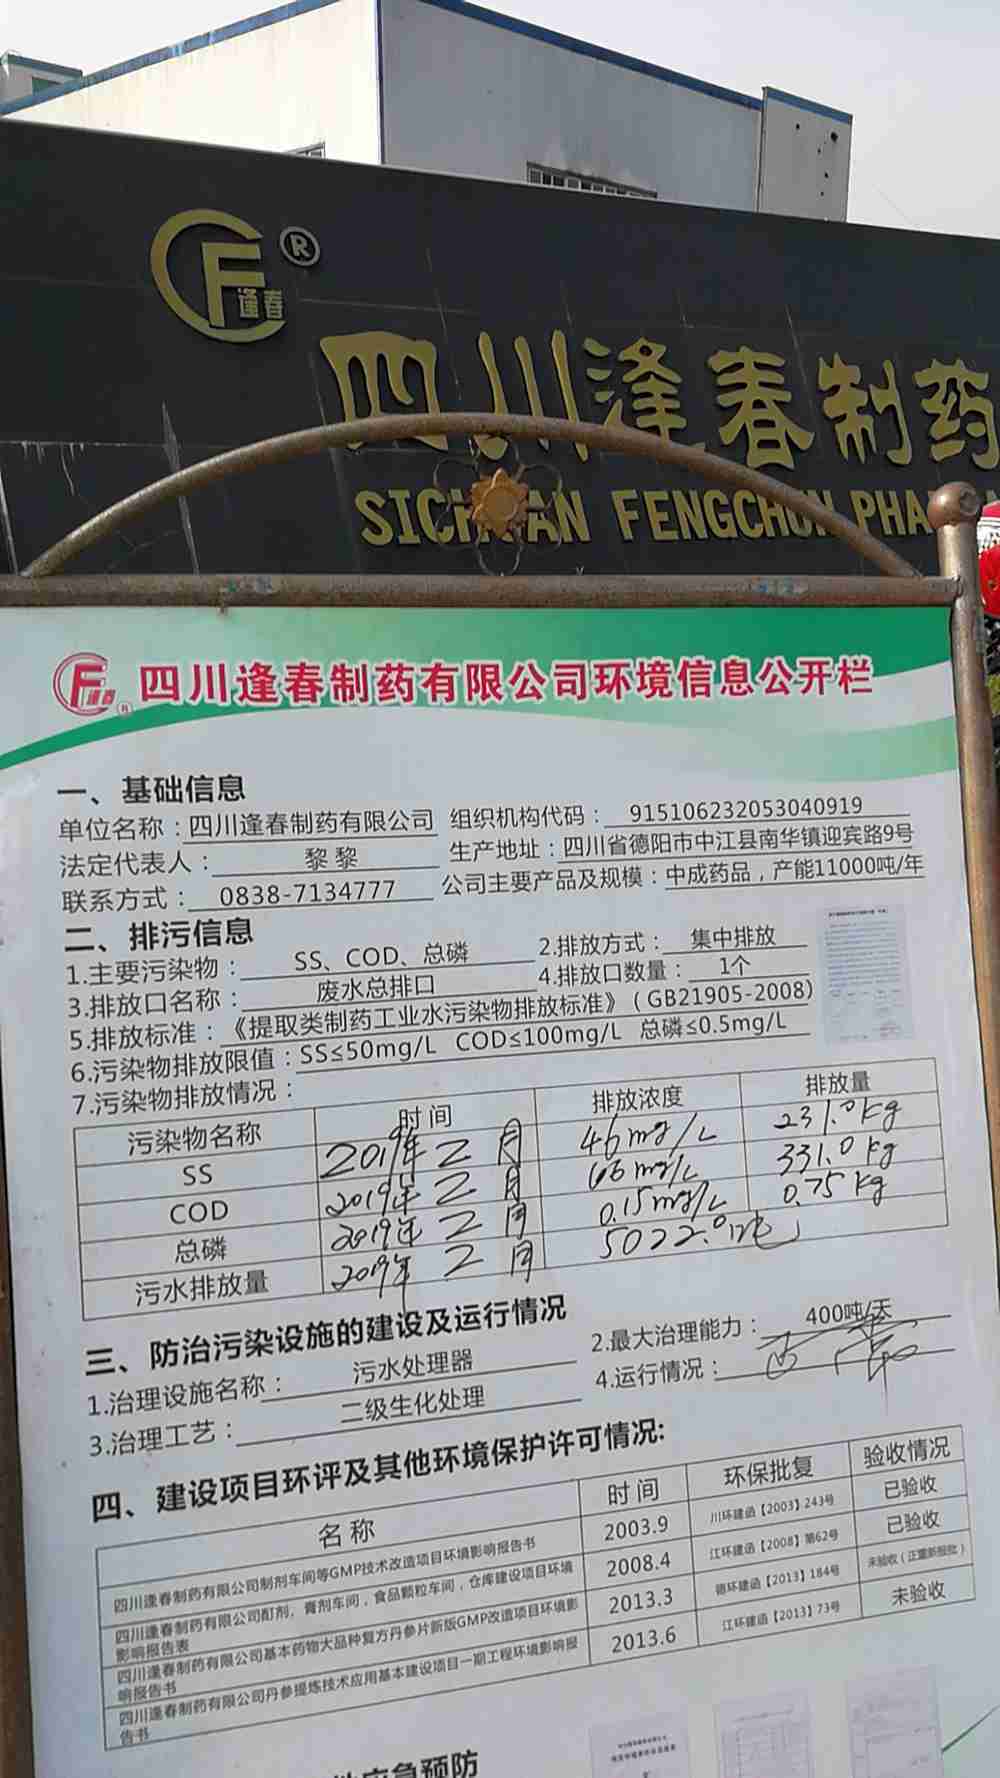 CF逢春®
四川逢春制药
SICHUAN FENGCHUN PHA
CF逢春® 四川逢春制药有限公司环境信息公开栏
一、基础信息
单位名称：四川逢春制药有限公司 组织机构代码： 915106232053040919
法定代表人： 黎黎 生产地址：四川省德阳市中江县南华镇迎宾路9号
联系方式： 0838-7134777 公司主要产品及规模：中成药品，产能11000吨/年
二、排污信息
1.主要污染物： SS、COD、总磷 2.排放方式： 集中排放
3.排放口名称： 废水总排口 4.排放口数量： 1个
5.排放标准：《提取类制药工业水污染物排放标准》（GB21905-2008）
6.污染物排放限值：SS≤50mg/L COD≤100mg/L 总磷≤0.5mg/L
7.污染物排放情况：
污染物名称 时间 排放浓度 排放量
SS 2019年二月 46mg/L 231.0kg
COD 2019年二月 66mg/L 331.0kg
总磷 2019年二月 0.15mg/L 0.75kg
污水排放量 2019年二月 5022.0吨
三、防治污染设施的建设及运行情况
1.治理设施名称： 污水处理器 2.最大治理能力： 400吨/天
3.治理工艺： 二级生化处理 4.运行情况： 正常
四、建设项目环评及其他环境保护许可情况:
名称 时间 环保批复 验收情况
四川逢春制药有限公司制剂车间等GMP技术改造项目环境影响报告书 2003.9 川环建函【2003】243号 已验收
四川逢春制药有限公司酊剂，膏剂车间，食品颗粒车间，仓库建设项目环境 2008.4 江环建函【2008】第62号 已验收
影响报告表
四川逢春制药有限公司基本药物大品种复方丹参片新版GMP改造项目环境影 2013.3 德环建函【2013】184号 未验收（正重新报批）
响报告书
四川逢春制药有限公司丹参提炼技术应用基本建设项目一期工程环境影响报 2013.6 江环建函【2013】73号 未验收
告书
应急预防